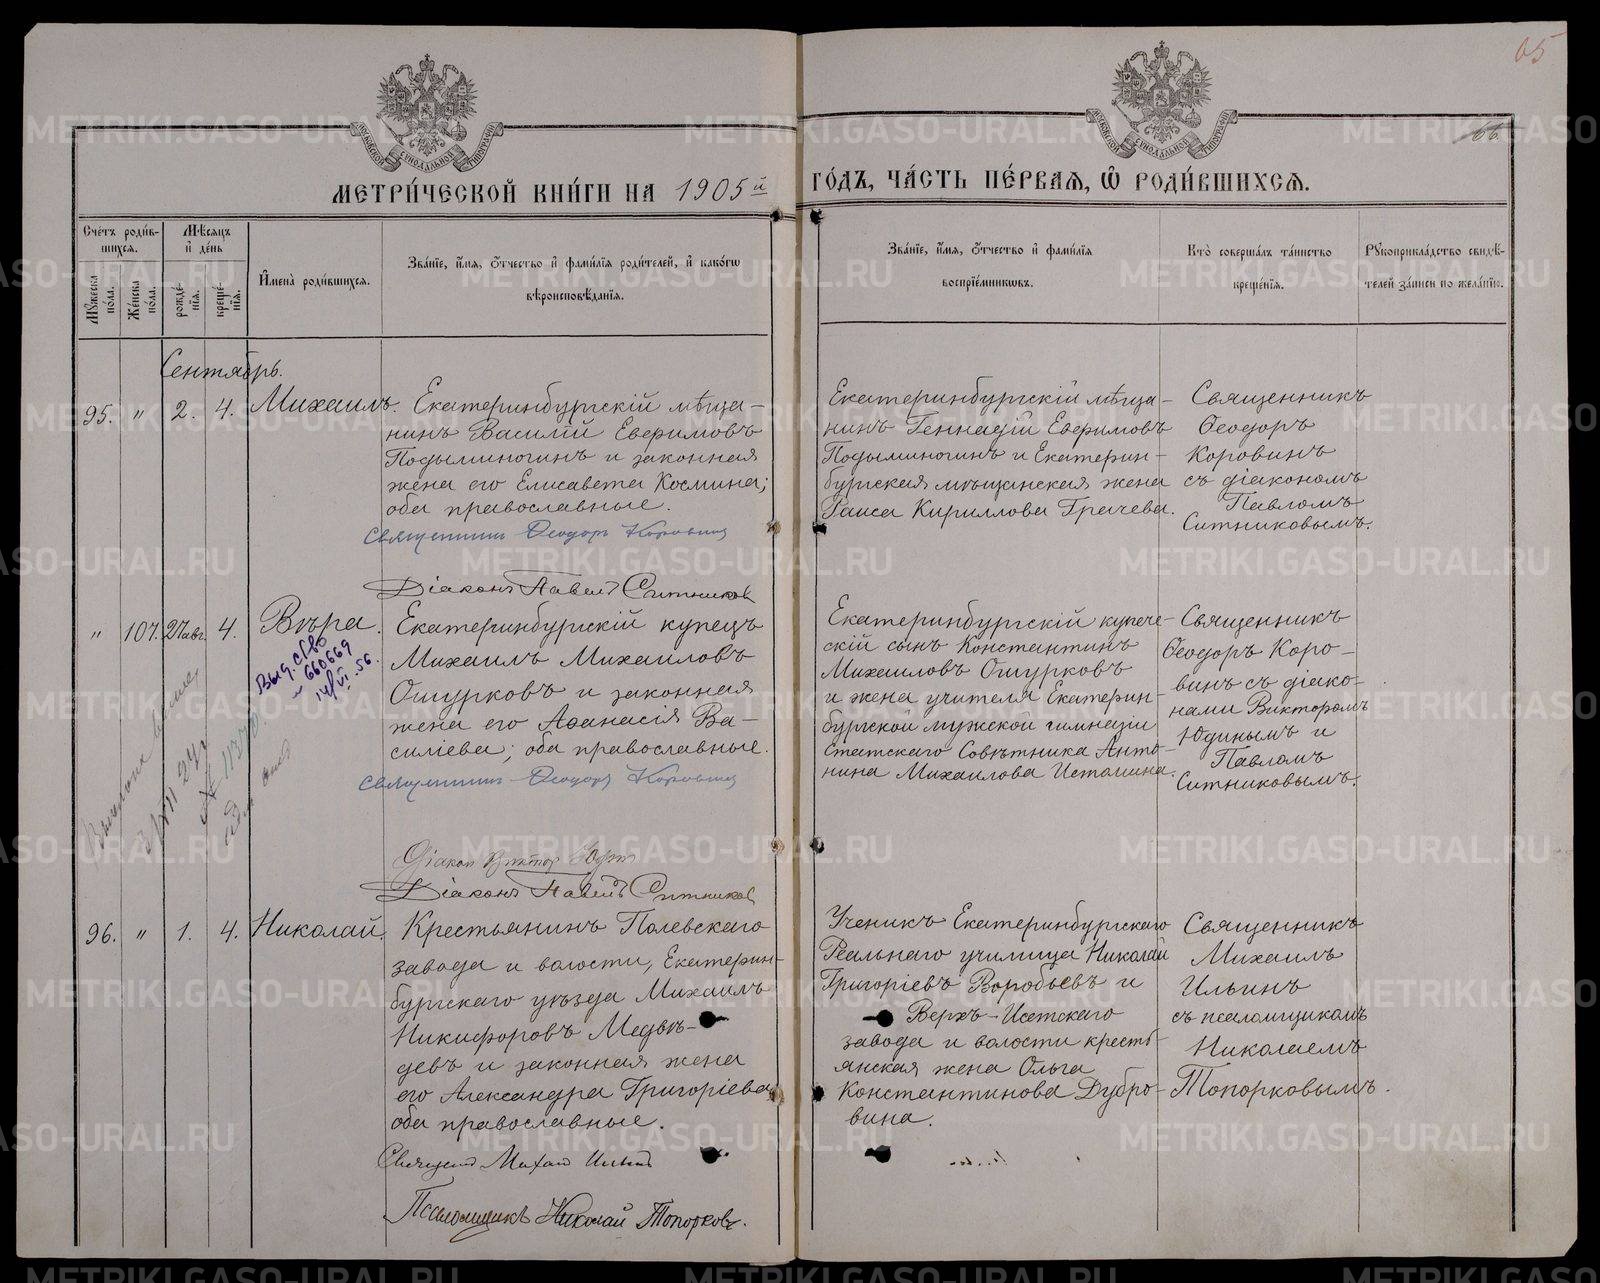 65
66.
МЕТРИ́ЧЕСКОЙ КНИ́ГИ НА 1905й ГО́ДЪ, ЧА́СТЬ ПЕ́РВАЯ, Ѡ РОДИ́ВШИХСЯ.
Счётъ роди́в-
шихся.
Мѣ́сяцъ
и де́нь
Му́жеска по́ла.
Же́нска по́ла.
рожде́-
нія.
креще́-
нія.
Имена̀ роди́вшихся.
Зва́ніе, и́мя, о́тчество и фами́лія роди́телей, и како́гѡ
вѣроисповѣ́данія.
Зва́ніе, и́мя, о́тчество и фами́лія
воспріе́мниковъ.
Кто̀ соверша́лъ та́инство
креще́нія.
Рукоприкла́дство свидѣ́-
телей за́писи по жела́нію.
Сентябрь.
95. " 2. 4. Михаилъ.
Екатеринбургскій мѣща-
нинъ Василій Евфимовъ
Подыминогинъ и законная
жена его Елисавета Космина;
оба православные.
Священникъ Ѳеодоръ Коровинъ
Діаконъ Павелъ Ситниковъ
Екатеринбургскій мѣща-
нинъ Геннадій Евфимовъ
Подыминогинъ и Екатерин-
бургская мѣщанская жена
Раиса Кириллова Грачева.
Священникъ
Ѳеодоръ
Коровинъ
съ діакономъ
Павломъ
Ситниковымъ.
" 107. 27 авг. 4. Вѣра.
Выд. св-во
660669
14/VI.56.
Екатеринбургскій купецъ
Михаилъ Михаиловъ
Ошурковъ и законная
жена его Аѳанасія Ва-
силіева; оба православные.
Священникъ Ѳеодоръ Коровинъ
Діаконъ Викторъ Юдинъ
Діаконъ Павелъ Ситниковъ
Екатеринбургскій купече-
скій сынъ Константинъ
Михаиловъ Ошурковъ
и жена учителя Екатерин-
бургской мужской гимназіи
Статскаго Совѣтника Анто-
нина Михаилова Истомина.
Священникъ
Ѳеодоръ Коро-
винъ съ діако-
нами Викторомъ
Юдинымъ и
Павломъ
Ситниковымъ.
96. " 1. 4. Николай.
Крестьянинъ Полевскаго
завода и волости, Екатерин-
бургскаго уѣзда Михаилъ
Никифоровъ Медвѣ-
девъ и законная жена
его Александра Григоріева
оба православные.
Священникъ Михаилъ Ильинъ
Псаломщикъ Николай Топорковъ.
Ученикъ Екатеринбургскаго
Реальнаго училища Николай
Григоріевъ Воробьевъ и
Верхъ-Исетскаго
завода и волости кресть-
янская жена Ольга
Константинова Дубро-
вина.
Священникъ
Михаилъ
Ильинъ
съ псаломщикомъ
Николаемъ
Топорковымъ.
METRIKI.GASO-URAL.RU